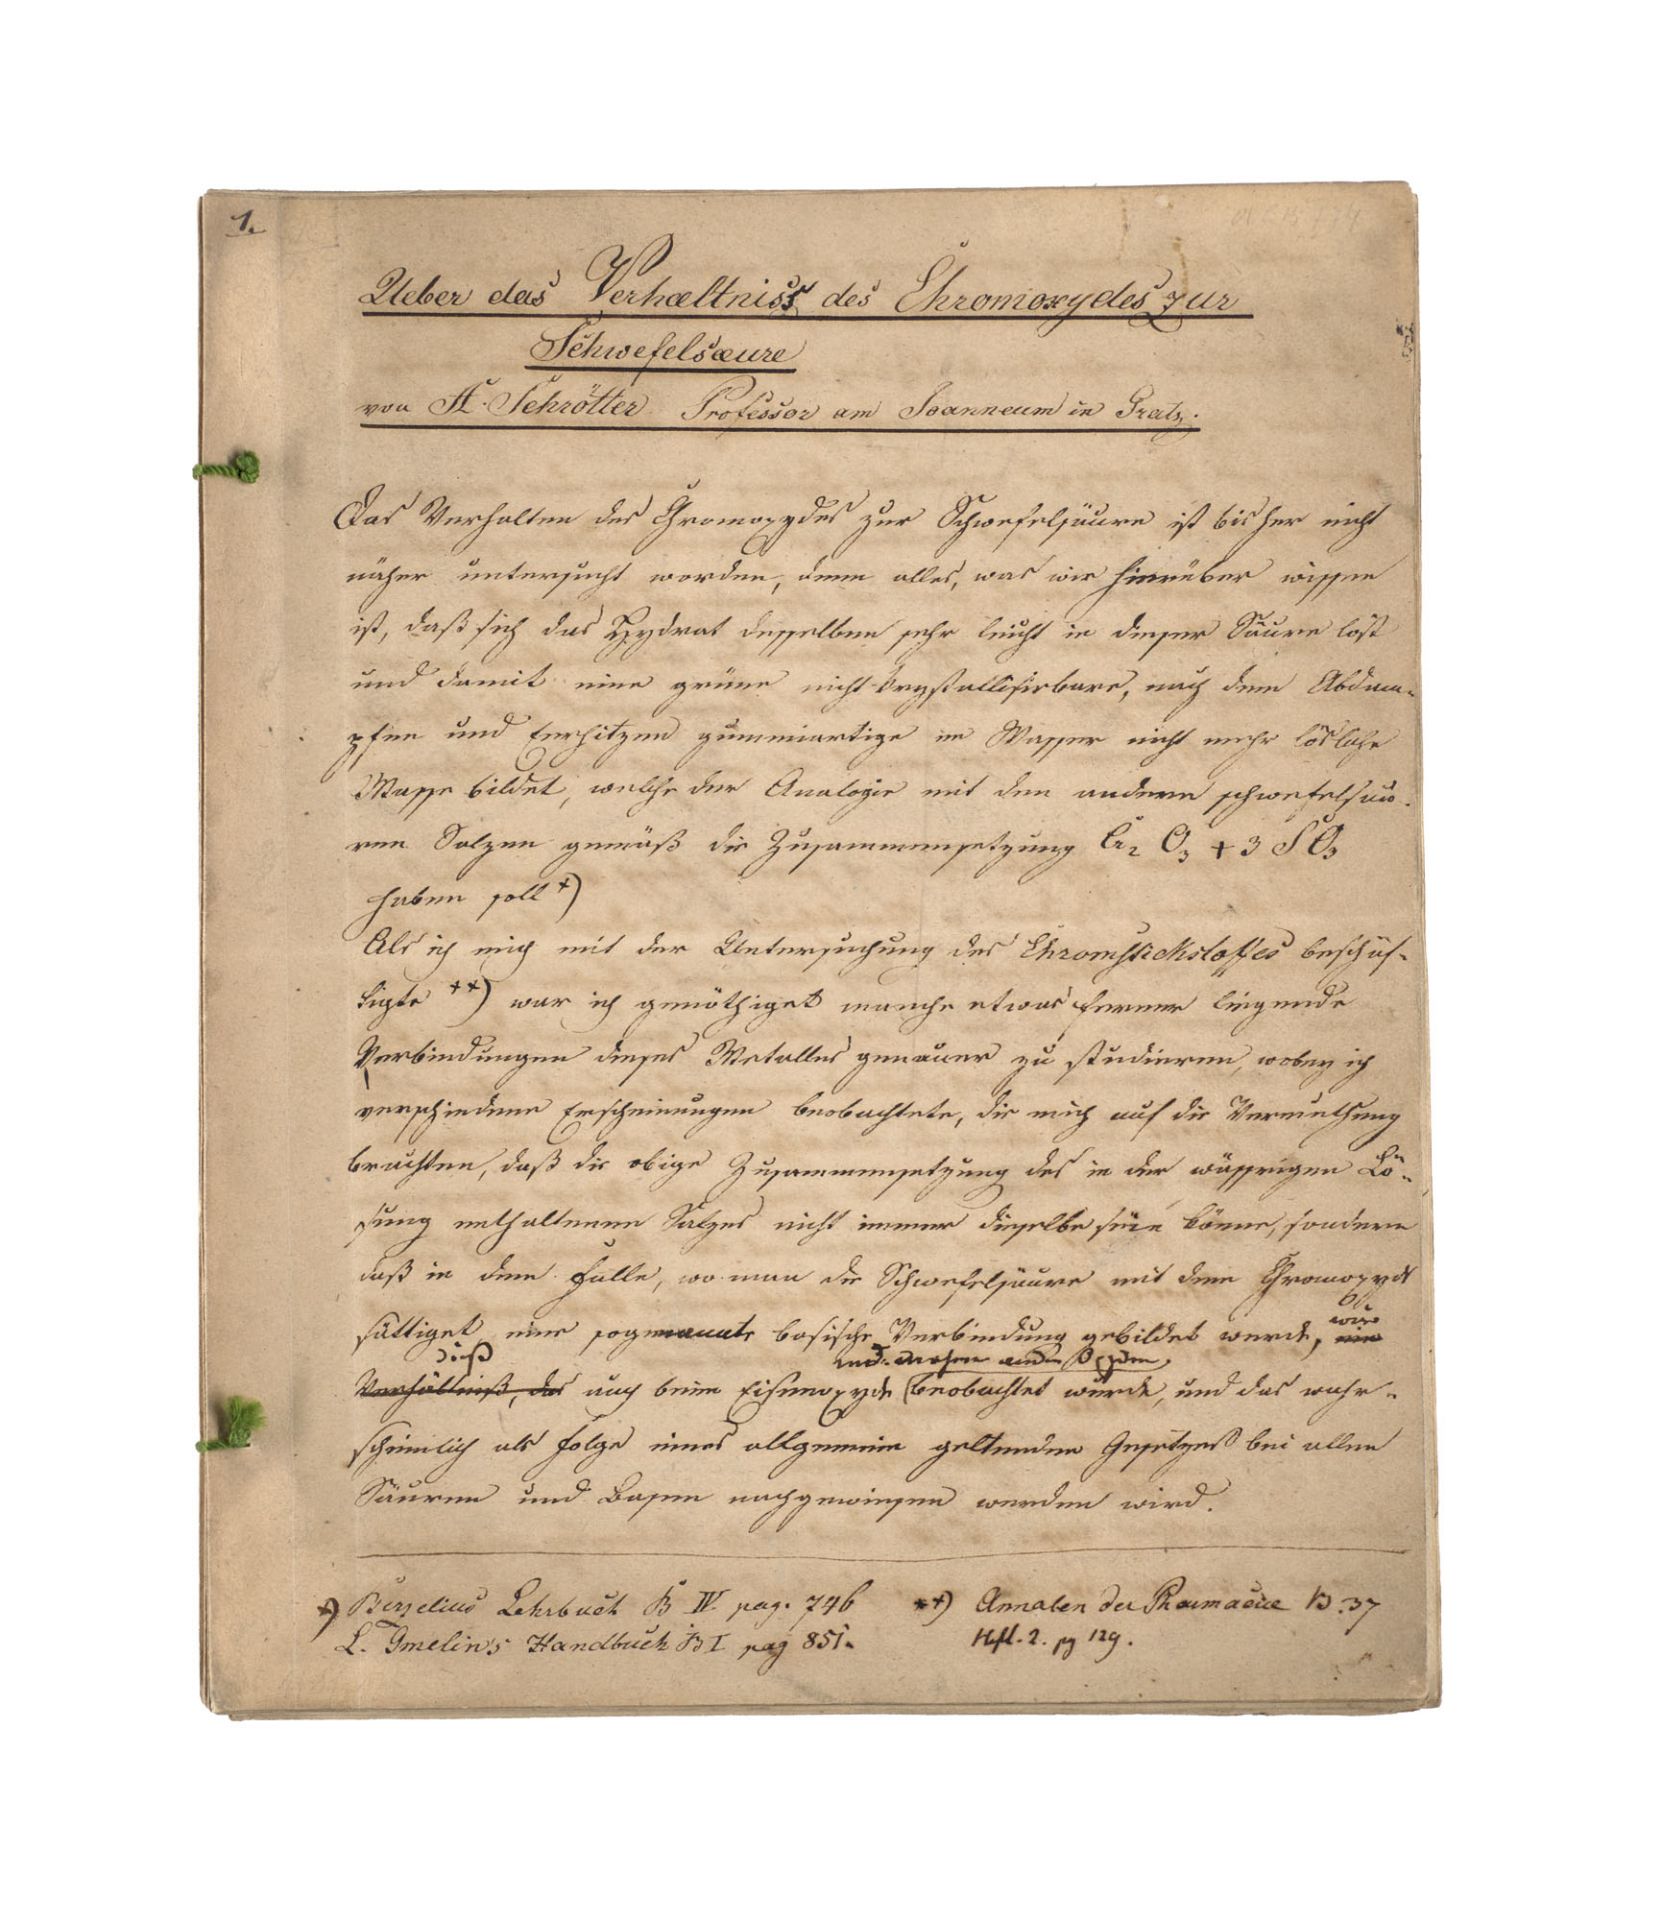 1.
Ueber das Verhæltniss des Chromoxydes zur
Schwefelsæure
von A. Schrötter Professor am Joanneum in Gratz.
Das Verhalten des Chromoxydes zur Schwefelsäure ist bisher nicht
näher untersucht worden, denn alles, was wir hierüber wissen
ist, daß sich das Hydrat desselben sehr leicht in dieser Säure löst
und damit eine grüne nicht krystallisirbare, nach dem Abdam-
pfen und Erhitzen gummiartige im Wasser nicht mehr lösliche
Masse bildet, welche der Analogie mit den andern schwefelsau-
ren Salzen gemäß die Zusammensetzung Cr2 O3 + 3 SO3
haben soll +)
Als ich mich mit der Untersuchung des Chromstickstoffes beschäf-
tigte ++) war ich genöthiget manche etwas ferner liegende
Verbindungen dieses Metalles genauer zu studieren, wobey ich
verschiedene Erscheinungen beobachtete, die mich auf die Vermuthung
brachten, daß die obige Zusammensetzung des in der wässrigen Lö-
sung enthaltenen Salzes nicht immer dieselbe sein könne, sondern
daß in dem Falle, wo man die Schwefelsäure mit dem Chromoxyd
sättiget eine sogenannte basische Verbindung gebildet werde, ein
wie
dieß
und mehren andern Oxyden
Verhältniß, das auch beim Eisenoxyde beobachtet wurde, und das wahr-
scheinlich als Folge eines allgemein geltenden Gesetzes bei allen
Säuren und Basen nachgewiesen werden wird.
+) Berzelius Lehrbuch B IV. pag. 746
L. Gmelin's Handbuch B I pag 851.
++) Annalen der Pharmacie B. 37
Heft. 2. pg 129.